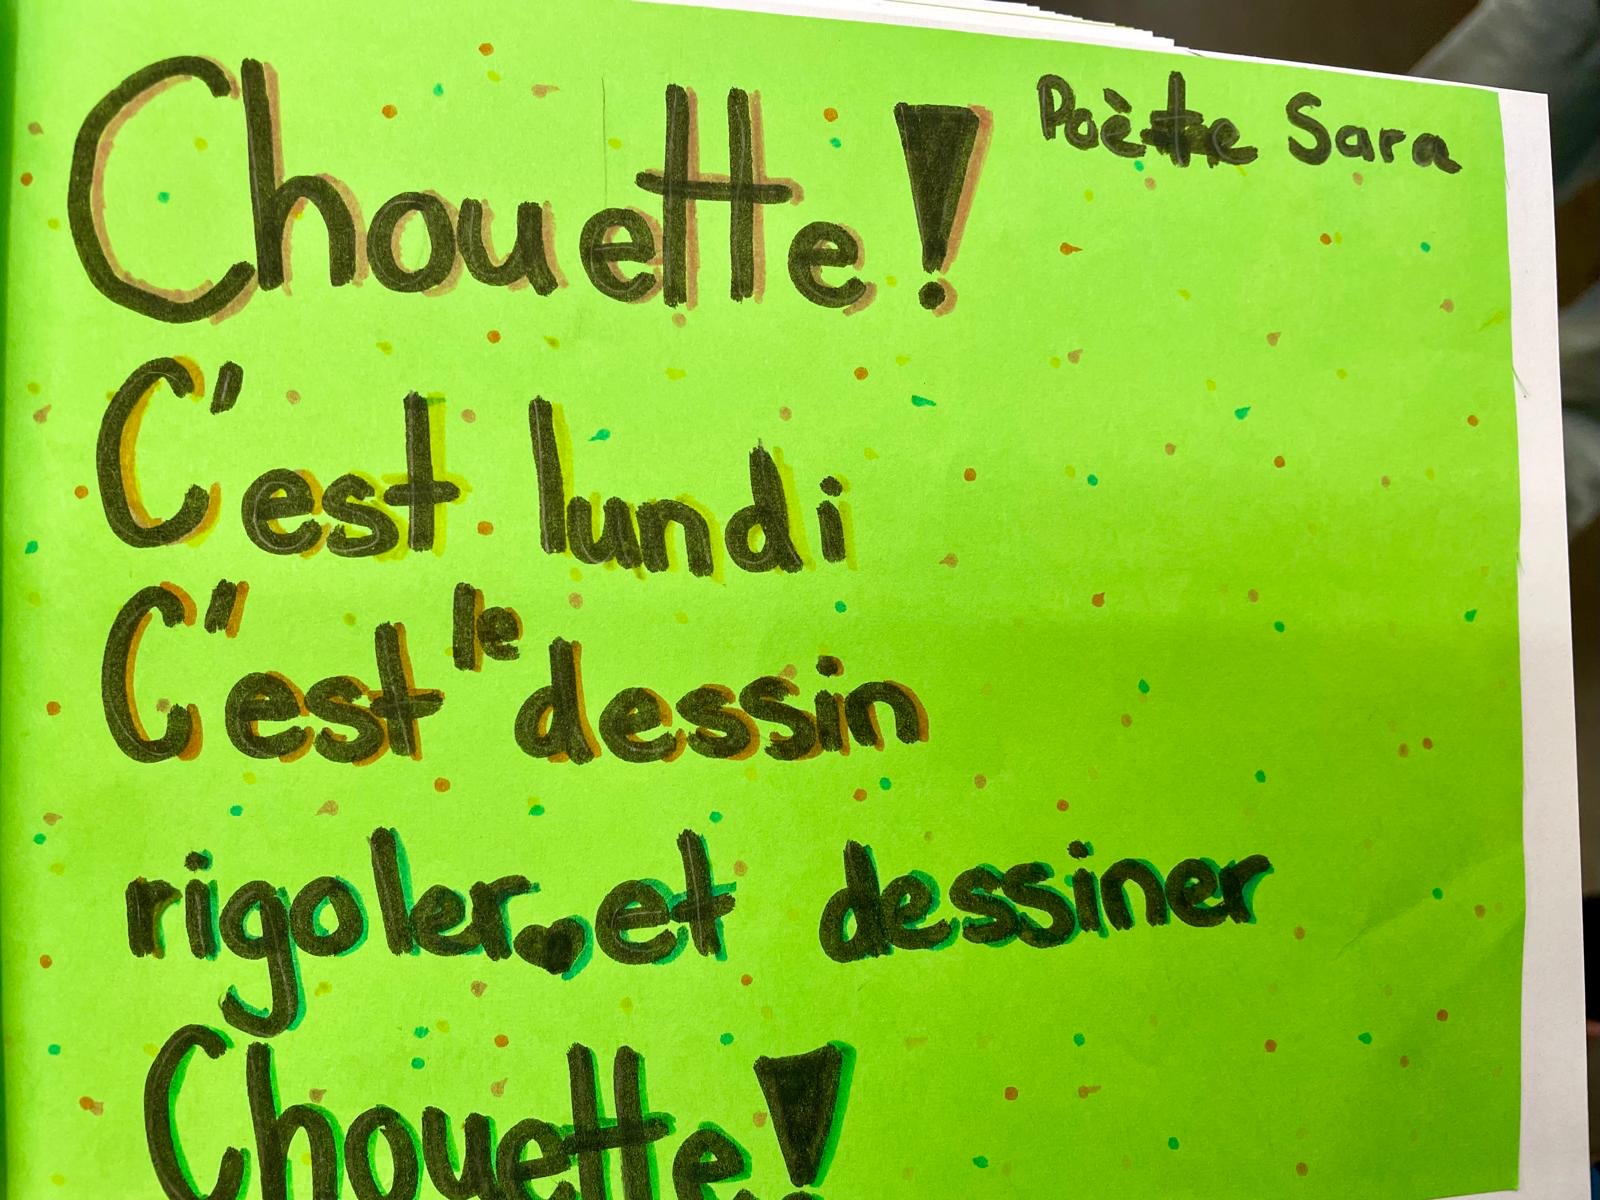 Chouette !
Poète Sara
C'est lundi
C'est le dessin
rigoler et dessiner
Chouette !